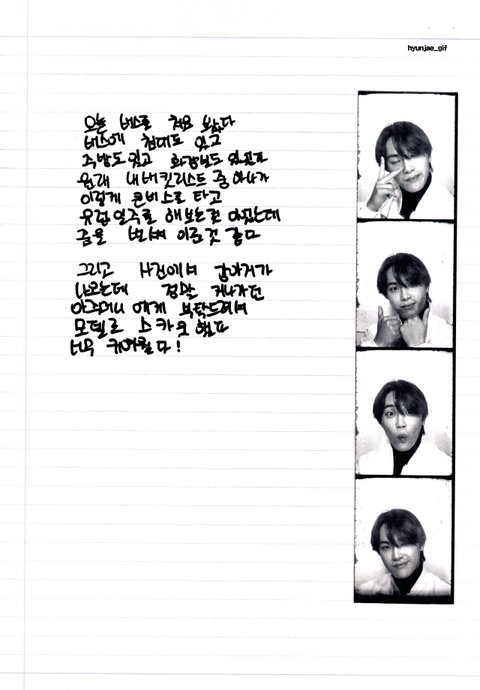 hyunjae_gif
오늘 버스를 처음 봤다
버스에 침대도 있고
주방도 있고 화장실도 있었다
원래 내 버킷리스트 중 하나가
이렇게 큰 버스로 타고
유럽 일주를 해보는 것 이었는데
꿈을 반쯤 이룬것 같다
그리고 사진에서 강아지가
나오는데 정말 지나가던
아주머니에게 부탁드려서
모델로 스카웃 했다
너무 귀여웠다!